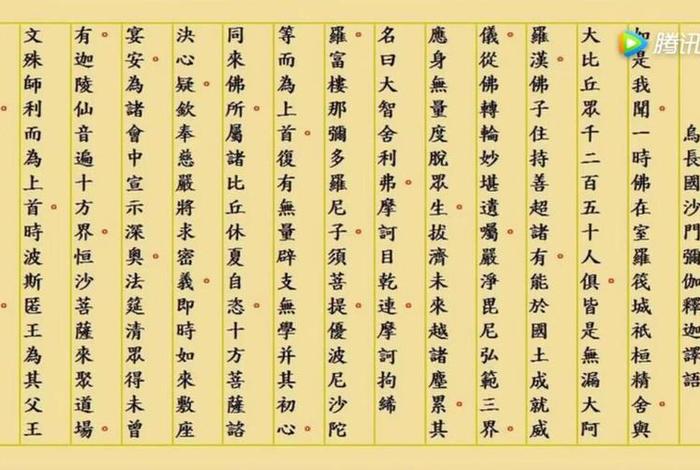 腾讯
烏長國沙門彌伽釋迦譯語
如是我聞。一時佛在室羅筏城祇桓精舍與
大比丘眾千二百五十人俱。皆是無漏大阿
羅漢。佛子住持善超諸有。能於國土成就威
儀。從佛轉輪。妙堪遺囑。嚴淨毘尼弘範三界。
應身無量度脫眾生。拔濟未來越諸塵累。其
名曰大智舍利弗。摩訶目乾連。摩訶拘絺
羅富樓那彌多羅尼子。須菩提。優波尼沙陀
等而為上首。復有無量辟支無學并其初心。
同來佛所。屬諸比丘休夏自恣。十方菩薩諮
決心疑。欽奉慈嚴將求密義。即時如來敷座
宴安為諸會中宣示深奧。法筵清眾得未曾
有。迦陵仙音遍十方界。恒沙菩薩來聚道場。
文殊師利而為上首。時波斯匿王為其父王